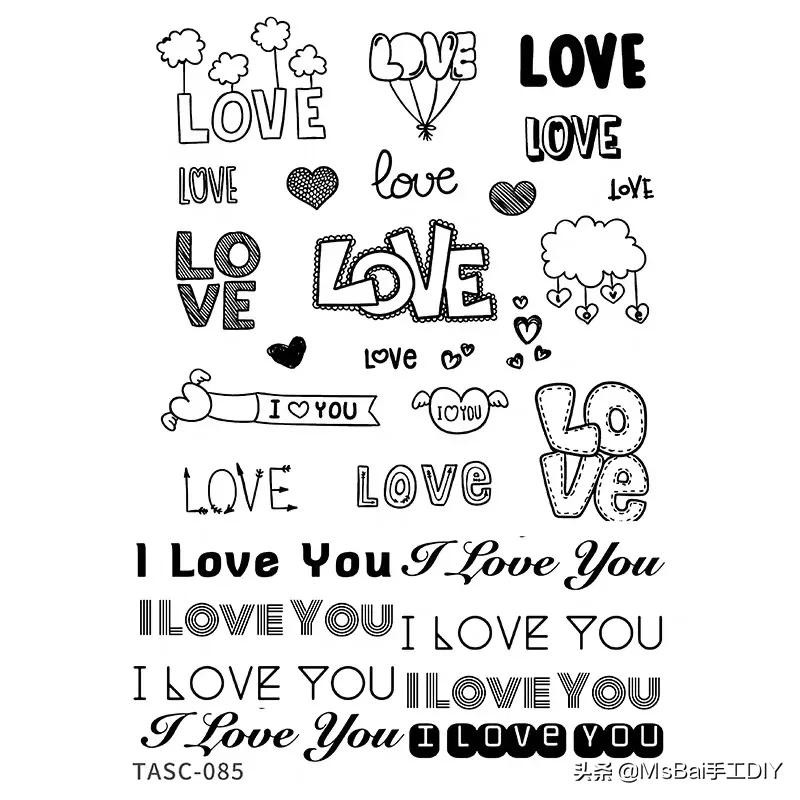 LOVE
LOVE
LOVE
LOVE
LOVE
love
LOVE
LO
VE
LOVE
LOVE
LOVE
I YOU
I YOU
LO
Ve
LOVE
LOVE
I Love You
I Love You
I LOVE YOU
I LOVE YOU
I LOVE YOU
I LOVE YOU
I Love You
I LOVE YOU
TASC-085
头条 @MsBai手工DIY